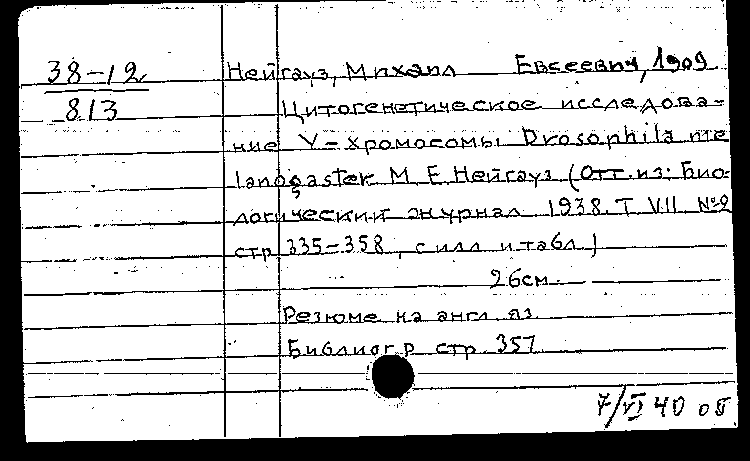 38-12
813
Нейгауз, Михаил Евсеевич, 1909
Цитогенетическое исследова-
ние Y-хромосомы Drosophila me
lanogaster М. Е. Нейгауз (Отт. из: Био-
логический журнал 1938. Т VII №2
стр 335-358, с илл и табл)
26см.
Резюме на англ яз
Библиогр стр. 357
7/VI 40 об